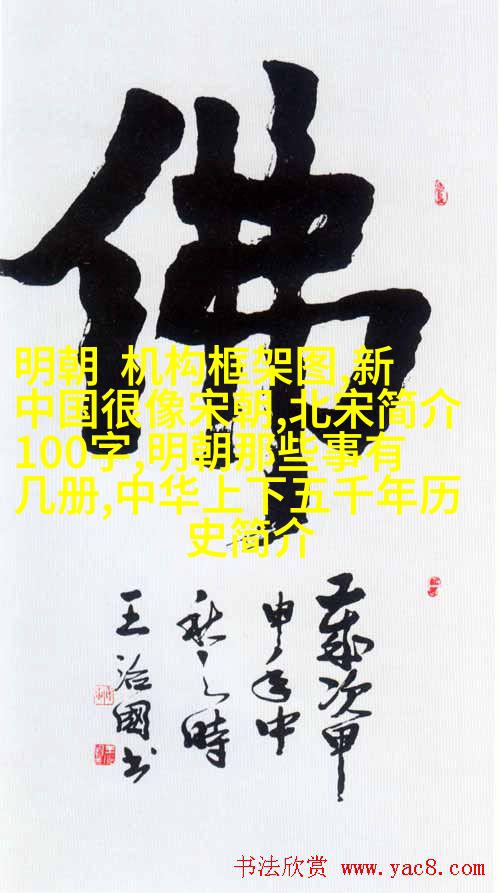 佛
明朝 机构框架图,新
中国很像宋朝,北宋简介
100字,明朝那些事有
几册,中华上下五千年历
史简介
岁次甲
申年中
秋之时
王治国书
书法欣赏 www.yac8.com